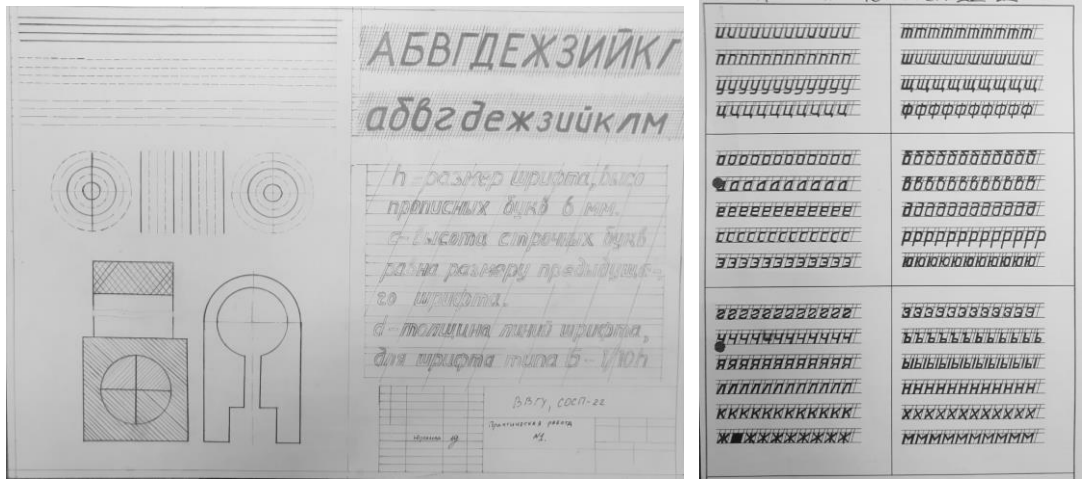 АБВГДЕЖЗИЙКГ
абвгдежзийклм
h – размер шрифта, высо
прописных букв 6 мм.
с – высота строчных букв
равна размеру предыдуще-
го шрифта.
d – толщина линий шрифта,
для шрифта типа Б – 1/10h
ВВГУ, СОСП-22
Практическая работа
№1
ииииииииииии
пппппппппппп
уууууууууууу
цццццццццццц
тттттттттт
шшшшшшшшшш
щщщщщщщщщ
фффффффффф
оооооооооооо
ааааааааааа
ееееееееееее
ссссссссссссс
ээээээээээээ
бббббббббббб
вввввввввввв
дддддддддддд
рррррррррррр
юююююююююю
гггггггггггг
чччччччччччч
яяяяяяяяяяяя
лллллллллллл
кккккккккккк
жжжжжжжжж
зззззззззззз
ъъъъъъъъъъъ
ыыыыыыыыыы
нннннннннннн
хххххххххххх
ммммммммммм